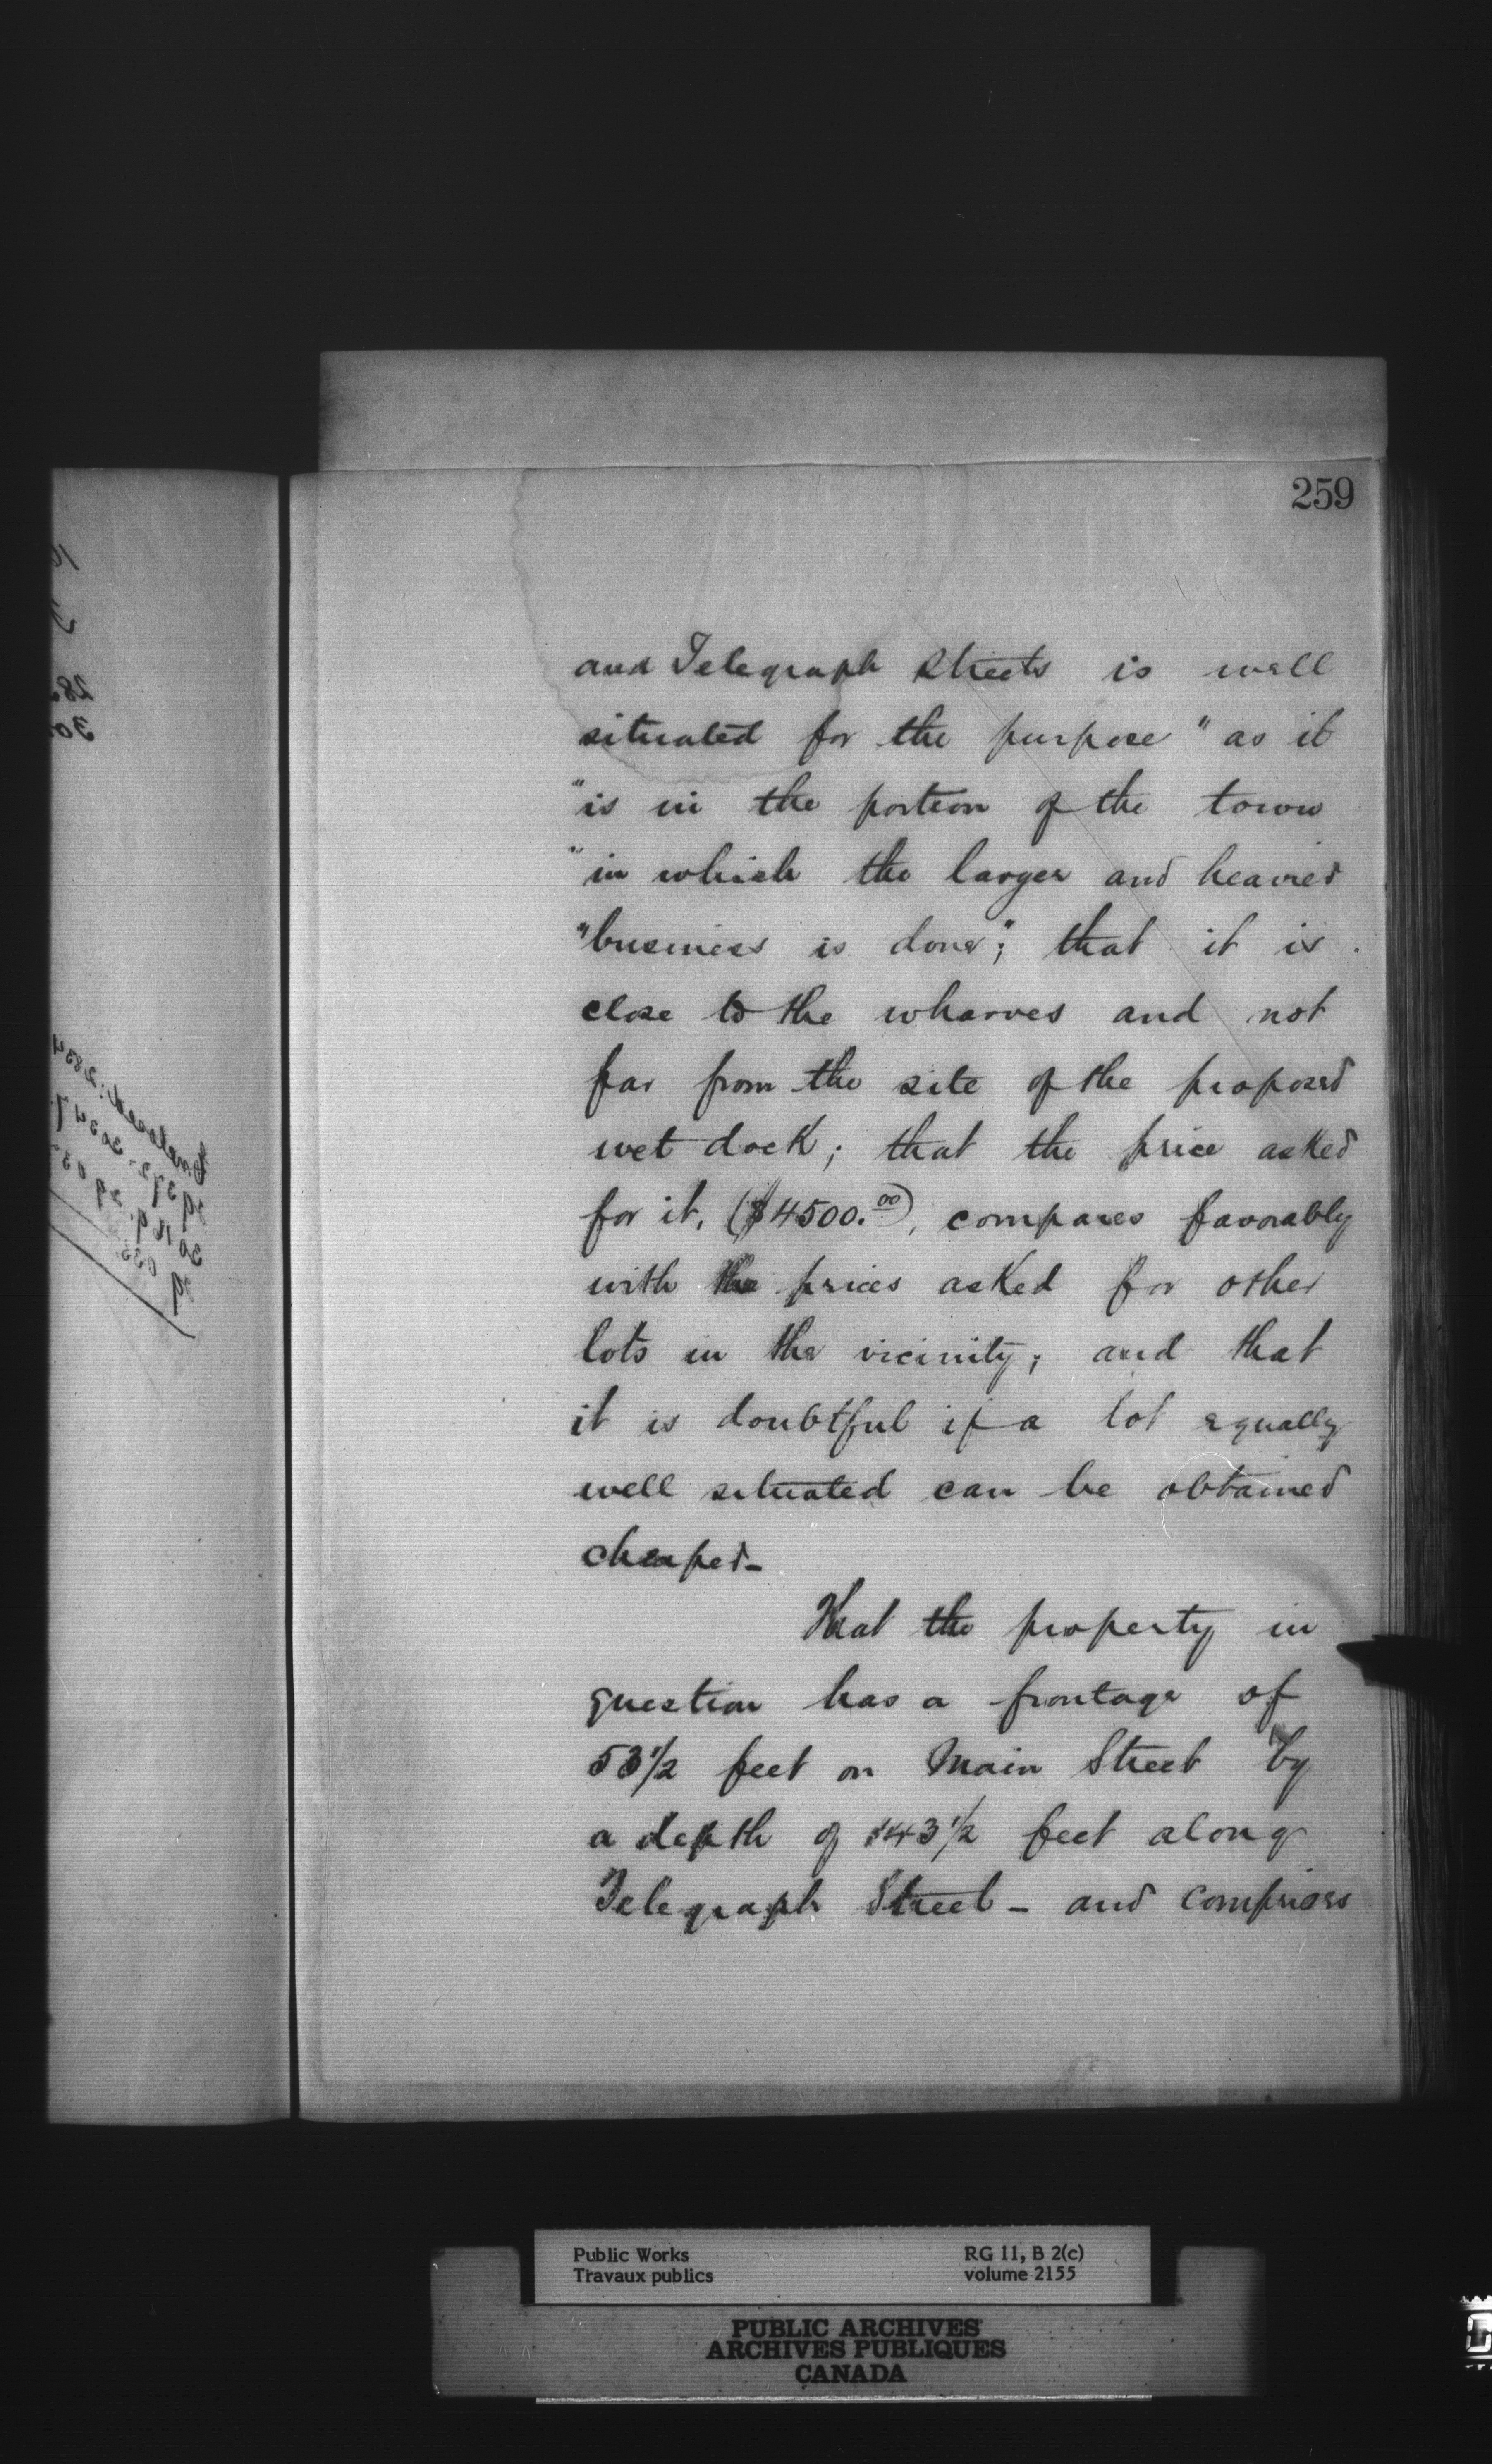 259
and Telegraph Streets is well
situated for the purpose "as it
"is in the portion of the town
"in which the larger and heavier
"business is done"; that it is
close to the wharves and not
far from the site of the proposed
wet dock; that the price asked
for it, ($4500.00), compares favorably
with the prices asked for other
lots in the vicinity; and that
it is doubtful if a lot equally
well situated can be obtained
cheaper_
That the property in
question has a frontage of
53 1/2 feet on Main Street by
a depth of 143 1/2 feet along
Telegraph Street - and comprises
Public Works
Travaux publics
RG 11, B 2(c)
volume 2155
PUBLIC ARCHIVES
ARCHIVES PUBLIQUES
CANADA